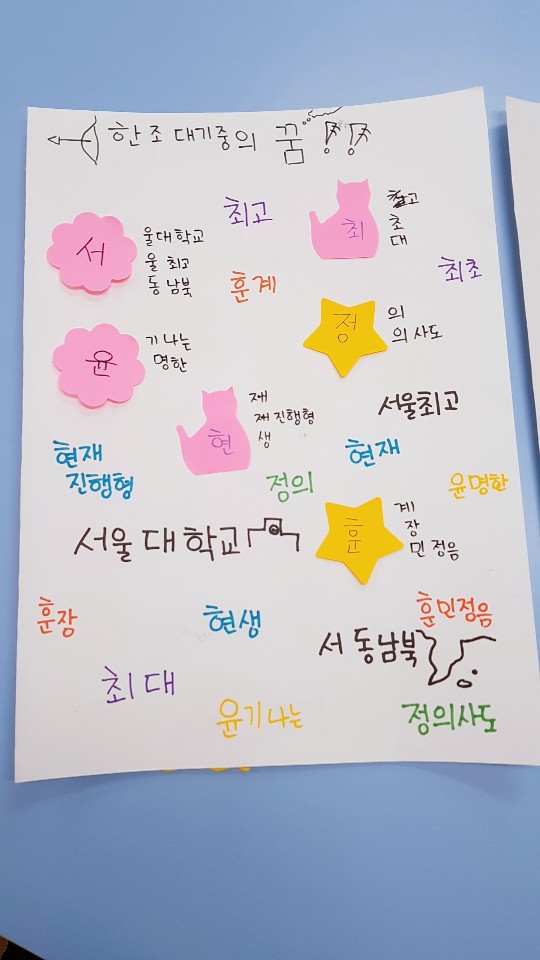 한조 대기중의 꿈 !!
최고
서
울대학교
울 최고
동남북
최
초
대
최초
훈계
정
의
의 사도
윤
기나는
명한
현
재
재진행형
생
서울최고
현재
진행형
현재
정의
윤명한
서울대학교
훈
계
장
민정음
훈장
현생
훈민정음
서동남북
최대
윤기나는
정의사도